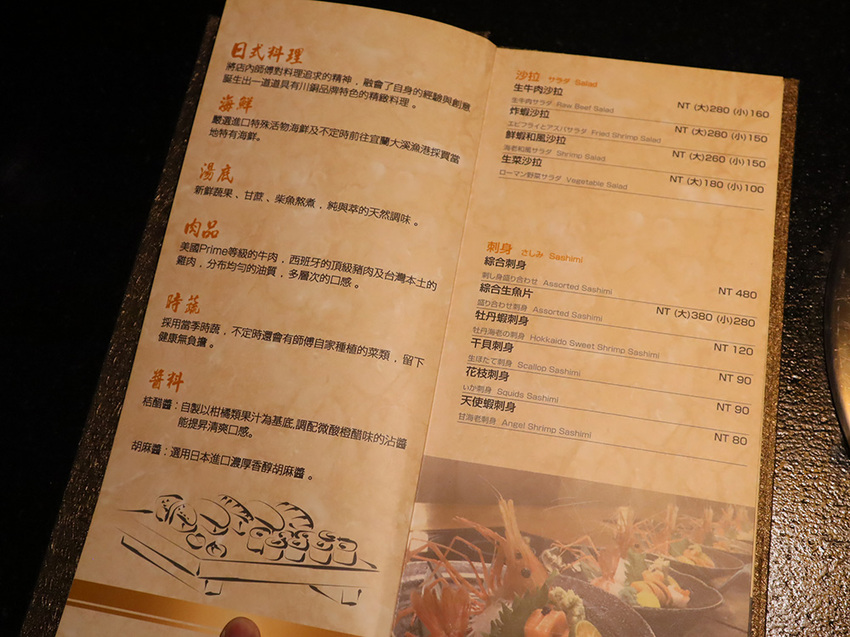 日式料理
將店內師傅對料理追求的精神，融會了自身的經驗與創意
誕生出一道道具有川鍋品牌特色的精緻料理。
海鮮
嚴選進口特殊活物海鮮及不定時前往宜蘭大溪漁港採買當
地特有海鮮。
湯底
新鮮蔬果、甘蔗、柴魚熬煮，純與萃的天然調味。
肉品
美國Prime等級的牛肉，西班牙的頂級豬肉及台灣本土的
雞肉，分布均勻的油質，多層次的口感。
時蔬
採用當季時蔬，不定時還會有師傅自家種植的菜類，留下
健康無負擔。
醬料
桔醋醬：自製以柑橘類果汁為基底,調配微酸橙醋味的沾醬
能提昇清爽口感。
胡麻醬：選用日本進口濃厚香醇胡麻醬。
沙拉 サラダ Salad
生牛肉沙拉
生牛肉サラダ Raw Beef Salad NT (大)280 (小)160
炸蝦沙拉
エビフライとアスパサラダ Fried Shrimp Salad NT (大)280 (小)150
鮮蝦和風沙拉
海老和風サラダ Shrimp Salad NT (大)260 (小)150
生菜沙拉
ローマン野菜サラダ Vegetable Salad NT (大)180 (小)100
刺身 さしみ Sashimi
綜合刺身
刺し身盛り合わせ Assorted Sashimi NT 480
綜合生魚片
盛り合わせ刺身 Assorted Sashimi NT (大)380 (小)280
牡丹蝦刺身
牡丹海老の刺身 Hokkaido Sweet Shrimp Sashimi NT 120
干貝刺身
生ほたて刺身 Scallop Sashimi NT 90
花枝刺身
いか刺身 Squids Sashimi NT 90
天使蝦刺身
甘海老刺身 Angel Shrimp Sashimi NT 80